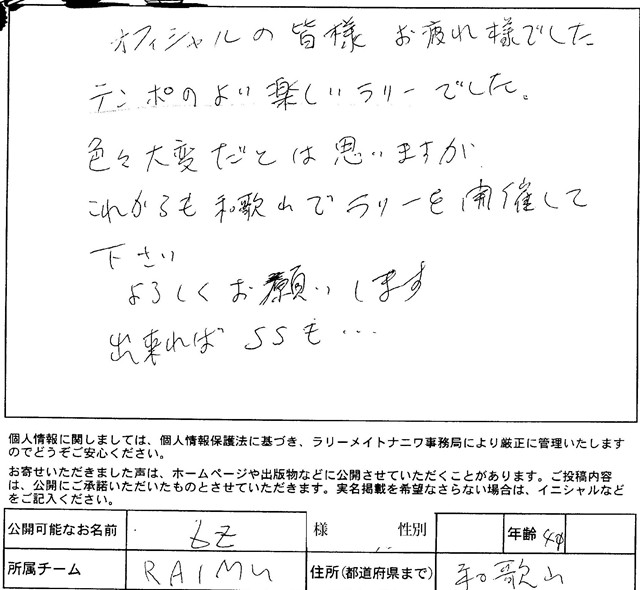 オフィシャルの皆様 お疲れ様でした
テンポのよい楽しいラリーでした。
色々大変だとは思いますが
これからも和歌山でラリーを開催して
下さい
よろしくお願いします
出来ればSSも…
個人情報に関しましては、個人情報保護法に基づき、ラリーメイトナニワ事務局により厳正に管理いたします
のでどうぞご安心ください。
お寄せいただきました声は、ホームページや出版物などに公開させていただくことがあります。ご投稿内容
は、公開にご承諾いただいたものとさせていただきます。実名掲載を希望なさらない場合は、イニシャルなど
をご記入ください。
公開可能なお名前 bz 様 性別 年齢 40
所属チーム RAIMU 住所(都道府県まで) 和歌山